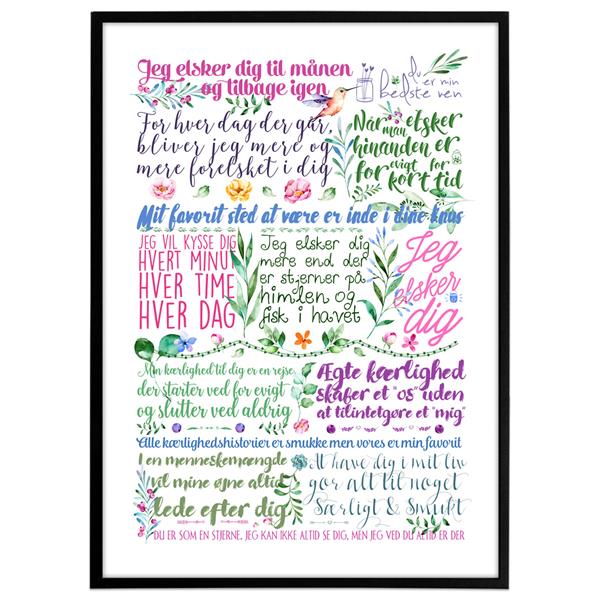 Jeg elsker dig til månen
og tilbage igen
du er min
bedste ven
For hver dag der går,
bliver jeg mere og
mere forelsket i dig
Når man elsker
hinanden er
for evigt for
kort tid
Mit favorit sted at være er inde i dine knus
JEG VIL KYSSE DIG
HVERT MINUT
HVER TIME
HVER DAG
Jeg elsker dig
mere end der
er stjerner på
himlen og
fisk i havet
Jeg
elsker
dig
Min kærlighed til dig er en rejse,
der starter ved for evigt
og slutter ved aldrig
Ægte kærlighed
skaber et "os" uden
at tilintetgøre et "mig"
Alle kærlighedshistorier er smukke men vores er min favorit
I en menneskemængde
vil mine øjne altid
lede efter dig
At have dig i mit liv
gør alt til noget
Særligt & Smukt
DU ER SOM EN STJERNE, JEG KAN IKKE ALTID SE DIG, MEN JEG VED DU ALTID ER DER